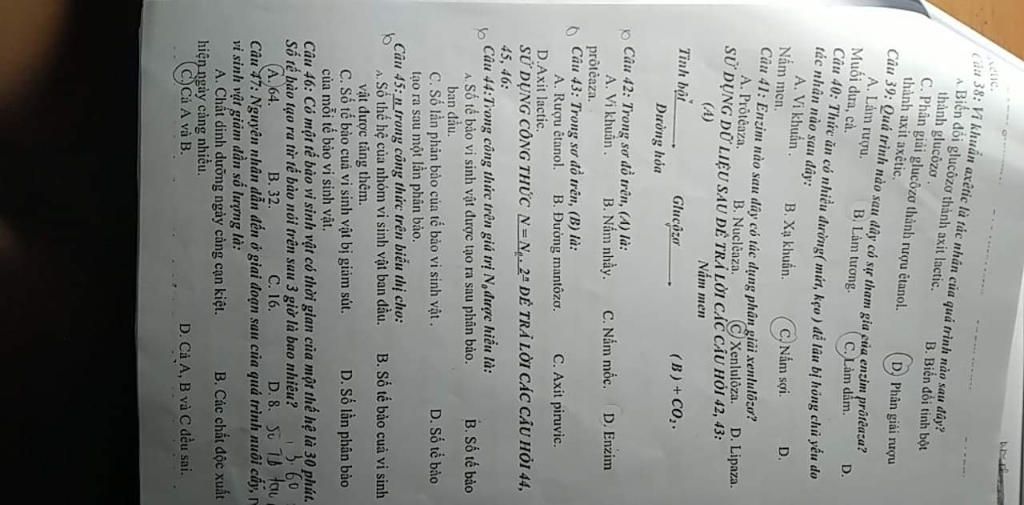 Câu 38: Vi khuẩn axêtic là tác nhân của quá trình nào sau đây?
A. Biến đổi glucôzơ thành axit lactic. B. Biến đổi tinh bột
thành glucôzơ .
C. Phân giải glucôzơ thành rượu êtanol. D. Phân giải rượu
thành axit axêtic.
Câu 39. Quá trình nào sau đây có sự tham gia của enzim prôtêaza?
A. Làm rượu. B. Làm tương. C. Làm dấm. D.
Muối dưa, cà.
Câu 40: Thức ăn có nhiều đường( mứt, kẹo ) dễ lâu bị hỏng chủ yếu do
tác nhân nào sau đây:
A. Vi khuẩn . B. Xạ khuẩn. C. Nấm sợi. D.
Nấm men.
Câu 41: Enzim nào sau đây có tác dụng phân giải xenlulôzơ?
A. Prôtêaza. B. Nuclêaza. C. Xenlulôza. D. Lipaza.
SỬ DỤNG DỮ LIỆU SAU ĐỂ TRẢ LỜI CÁC CÂU HỎI 42, 43:
(A) Nấm men
Tinh bột Glucôzơ ( B ) + CO₂.
Đường hóa
Câu 42: Trong sơ đồ trên, (A) là:
A. Vi khuẩn . B. Nấm nhầy. C. Nấm mốc. D. Enzim
prôtêaza.
Câu 43: Trong sơ đồ trên, (B) là:
A. Rượu êtanol. B. Đường mantôzơ. C. Axit piruvic.
D.Axit lactic.
SỬ DỤNG CÔNG THỨC N = N₀ . 2ⁿ ĐỂ TRẢ LỜI CÁC CÂU HỎI 44,
45, 46:
Câu 44:Trong công thức trên giá trị N₀ được hiểu là:
A. Số tế bào vi sinh vật được tạo ra sau phân bào. B. Số tế bào
ban đầu.
C. Số lần phân bào của tế bào vi sinh vật . D. Số tế bào
tạo ra sau một lần phân bào.
Câu 45: n trong công thức trên biểu thị cho:
A. Số thế hệ của nhóm vi sinh vật ban đầu. B. Số tế bào của vi sinh
vật được tăng thêm.
C. Số tế bào của vi sinh vật bị giảm sút. D. Số lần phân bào
của mỗi tế bào vi sinh vật.
Câu 46: Có một tế bào vi sinh vật có thời gian của một thế hệ là 30 phút.
Số tế bào tạo ra từ tế bào nói trên sau 3 giờ là bao nhiêu?
A. 64. B. 32. C. 16. D. 8.
Câu 47: Nguyên nhân dẫn đến ở giai đoạn sau của quá trình nuôi cấy,
vi sinh vật giảm dần số lượng là:
A. Chất dinh dưỡng ngày càng cạn kiệt. B. Các chất độc xuất
hiện ngày càng nhiều.
C. Cả A và B. D. Cả A, B và C đều sai.